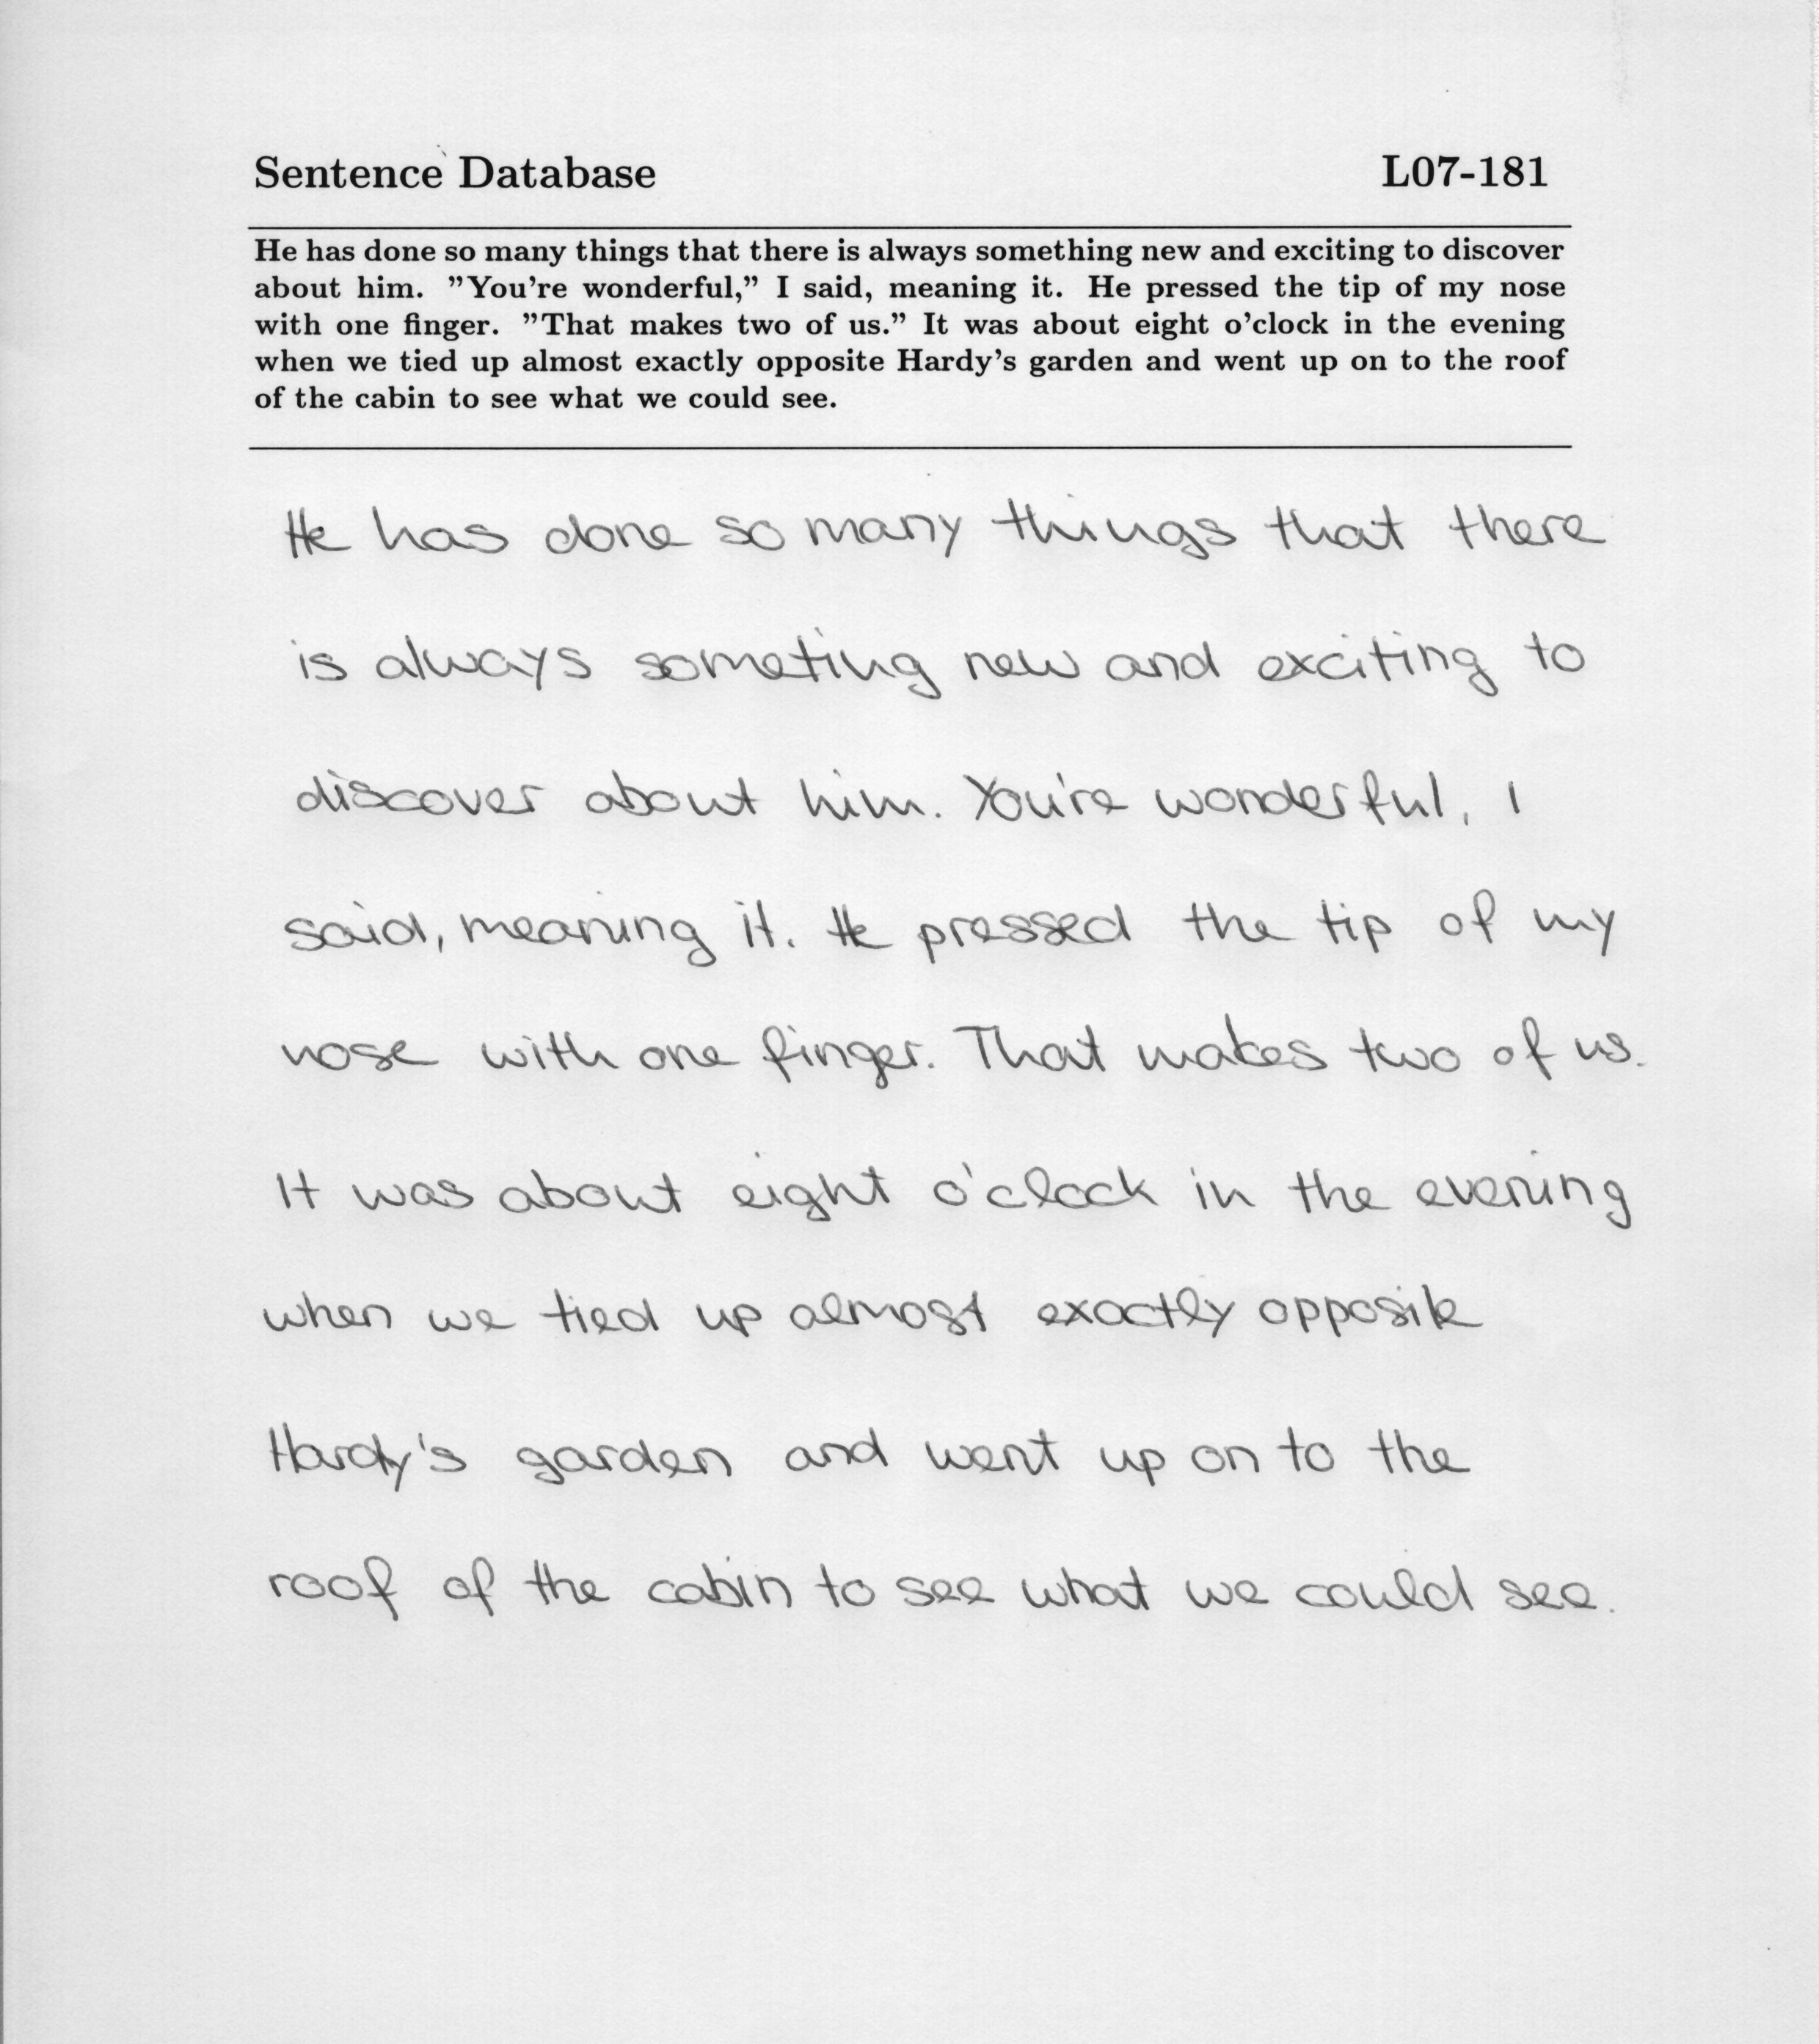 Sentence Database L07-181
He has done so many things that there is always something new and exciting to discover
about him. ”You're wonderful,” I said, meaning it. He pressed the tip of my nose
with one finger. ”That makes two of us.” It was about eight o'clock in the evening
when we tied up almost exactly opposite Hardy's garden and went up on to the roof
of the cabin to see what we could see.
He has done so many things that there
is always someting new and exciting to
discover about him. You're wonderful, I
said, meaning it. He pressed the tip of my
nose with one finger. That makes two of us.
It was about eight o'clock in the evening
when we tied up almost exactly opposite
Hardy's garden and went up on to the
roof of the cabin to see what we could see.